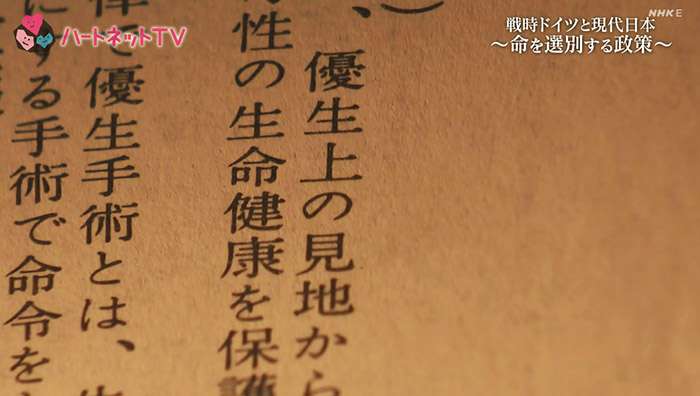 ハートネットTV
NHK E
戦時ドイツと現代日本
～命を選別する政策～
）
、優生上の見地から
性の生命健康を保護
で優生手術とは、
にする手術で命令を